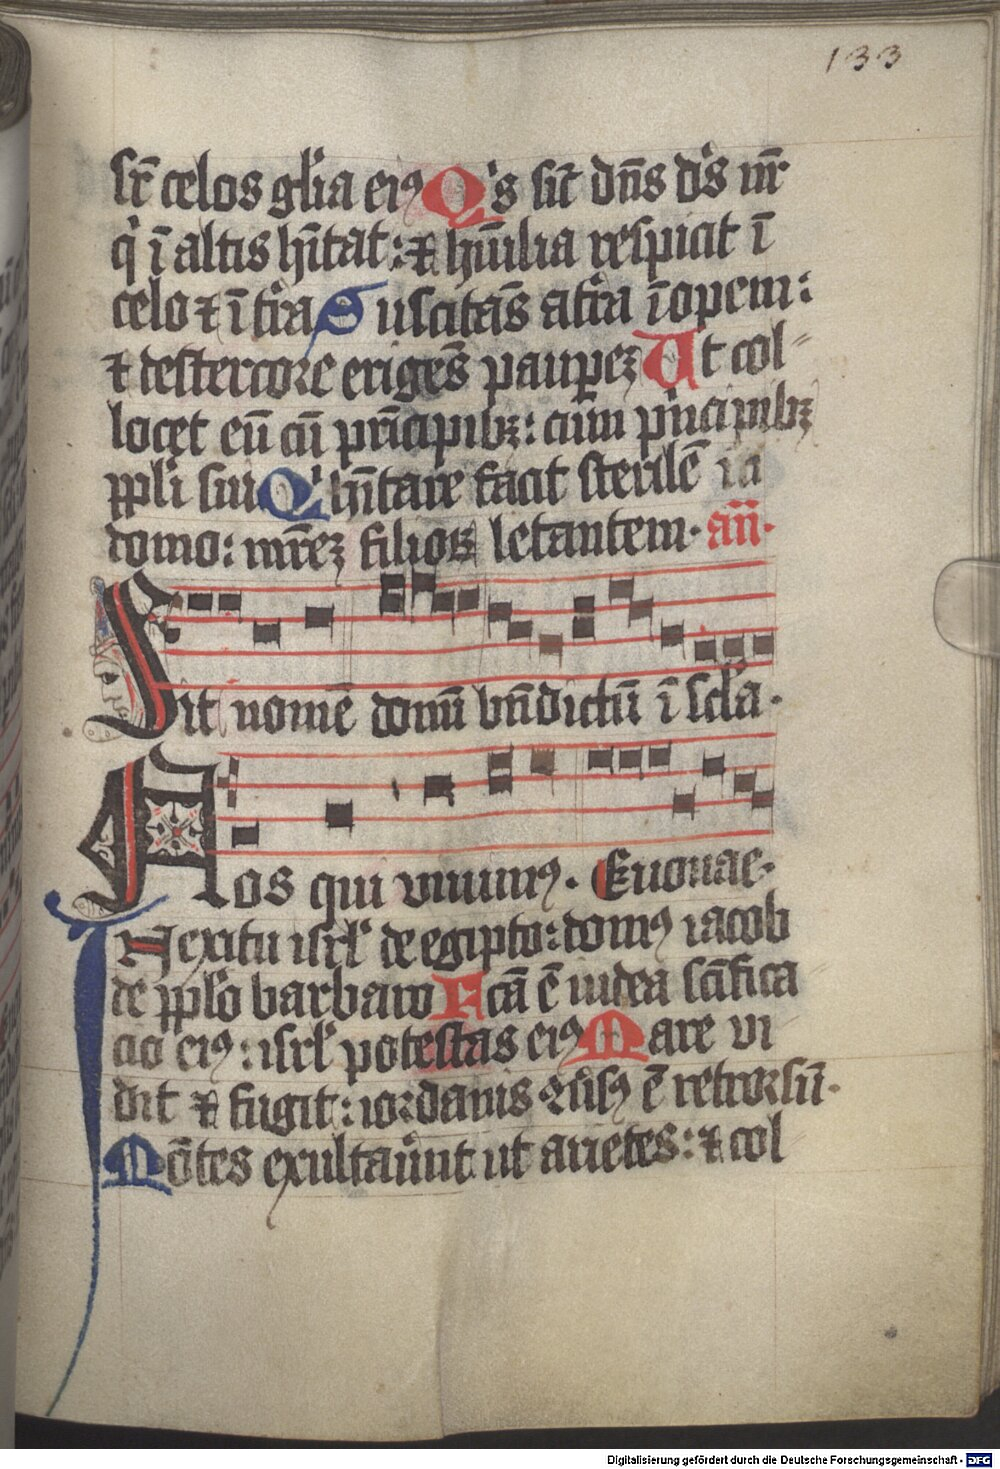 133
sr̄ celos gl'ia eiꝰ Q's sic̄ dn̄s d's nr̄
q' ī altis hī̄tat: ⁊ hūilia respicit ī
celo ⁊ ī t'ra Suscitās at'ra īopem:
⁊ destercore erigēs pauꝑeꝫ Ut col
locet eū cū prīcipibꝫ: cūm p'ncipibꝫ
ppl'i sui Q' hī̄tare facit sterilē in
domo: mr̄eꝫ filioꝝ letantem. añ.
Sit nomē domī bn̄dictū ī scl'a.
Nos qui viuimꝰ. Euouae.
In exitu isrl' de egipto: domꝰ iacob
de ppl'o barbaro Fcā ē iudea scīfica
cio eiꝰ: isrl' potestas eiꝰ Mare vi
dit ⁊ fugit: iordanis ꝯu'sꝰ ē retrorsū.
Mōtes exultaūnt ut arietes: ⁊ col
Digitalisierung gefördert durch die Deutsche Forschungsgemeinschaft - DFG